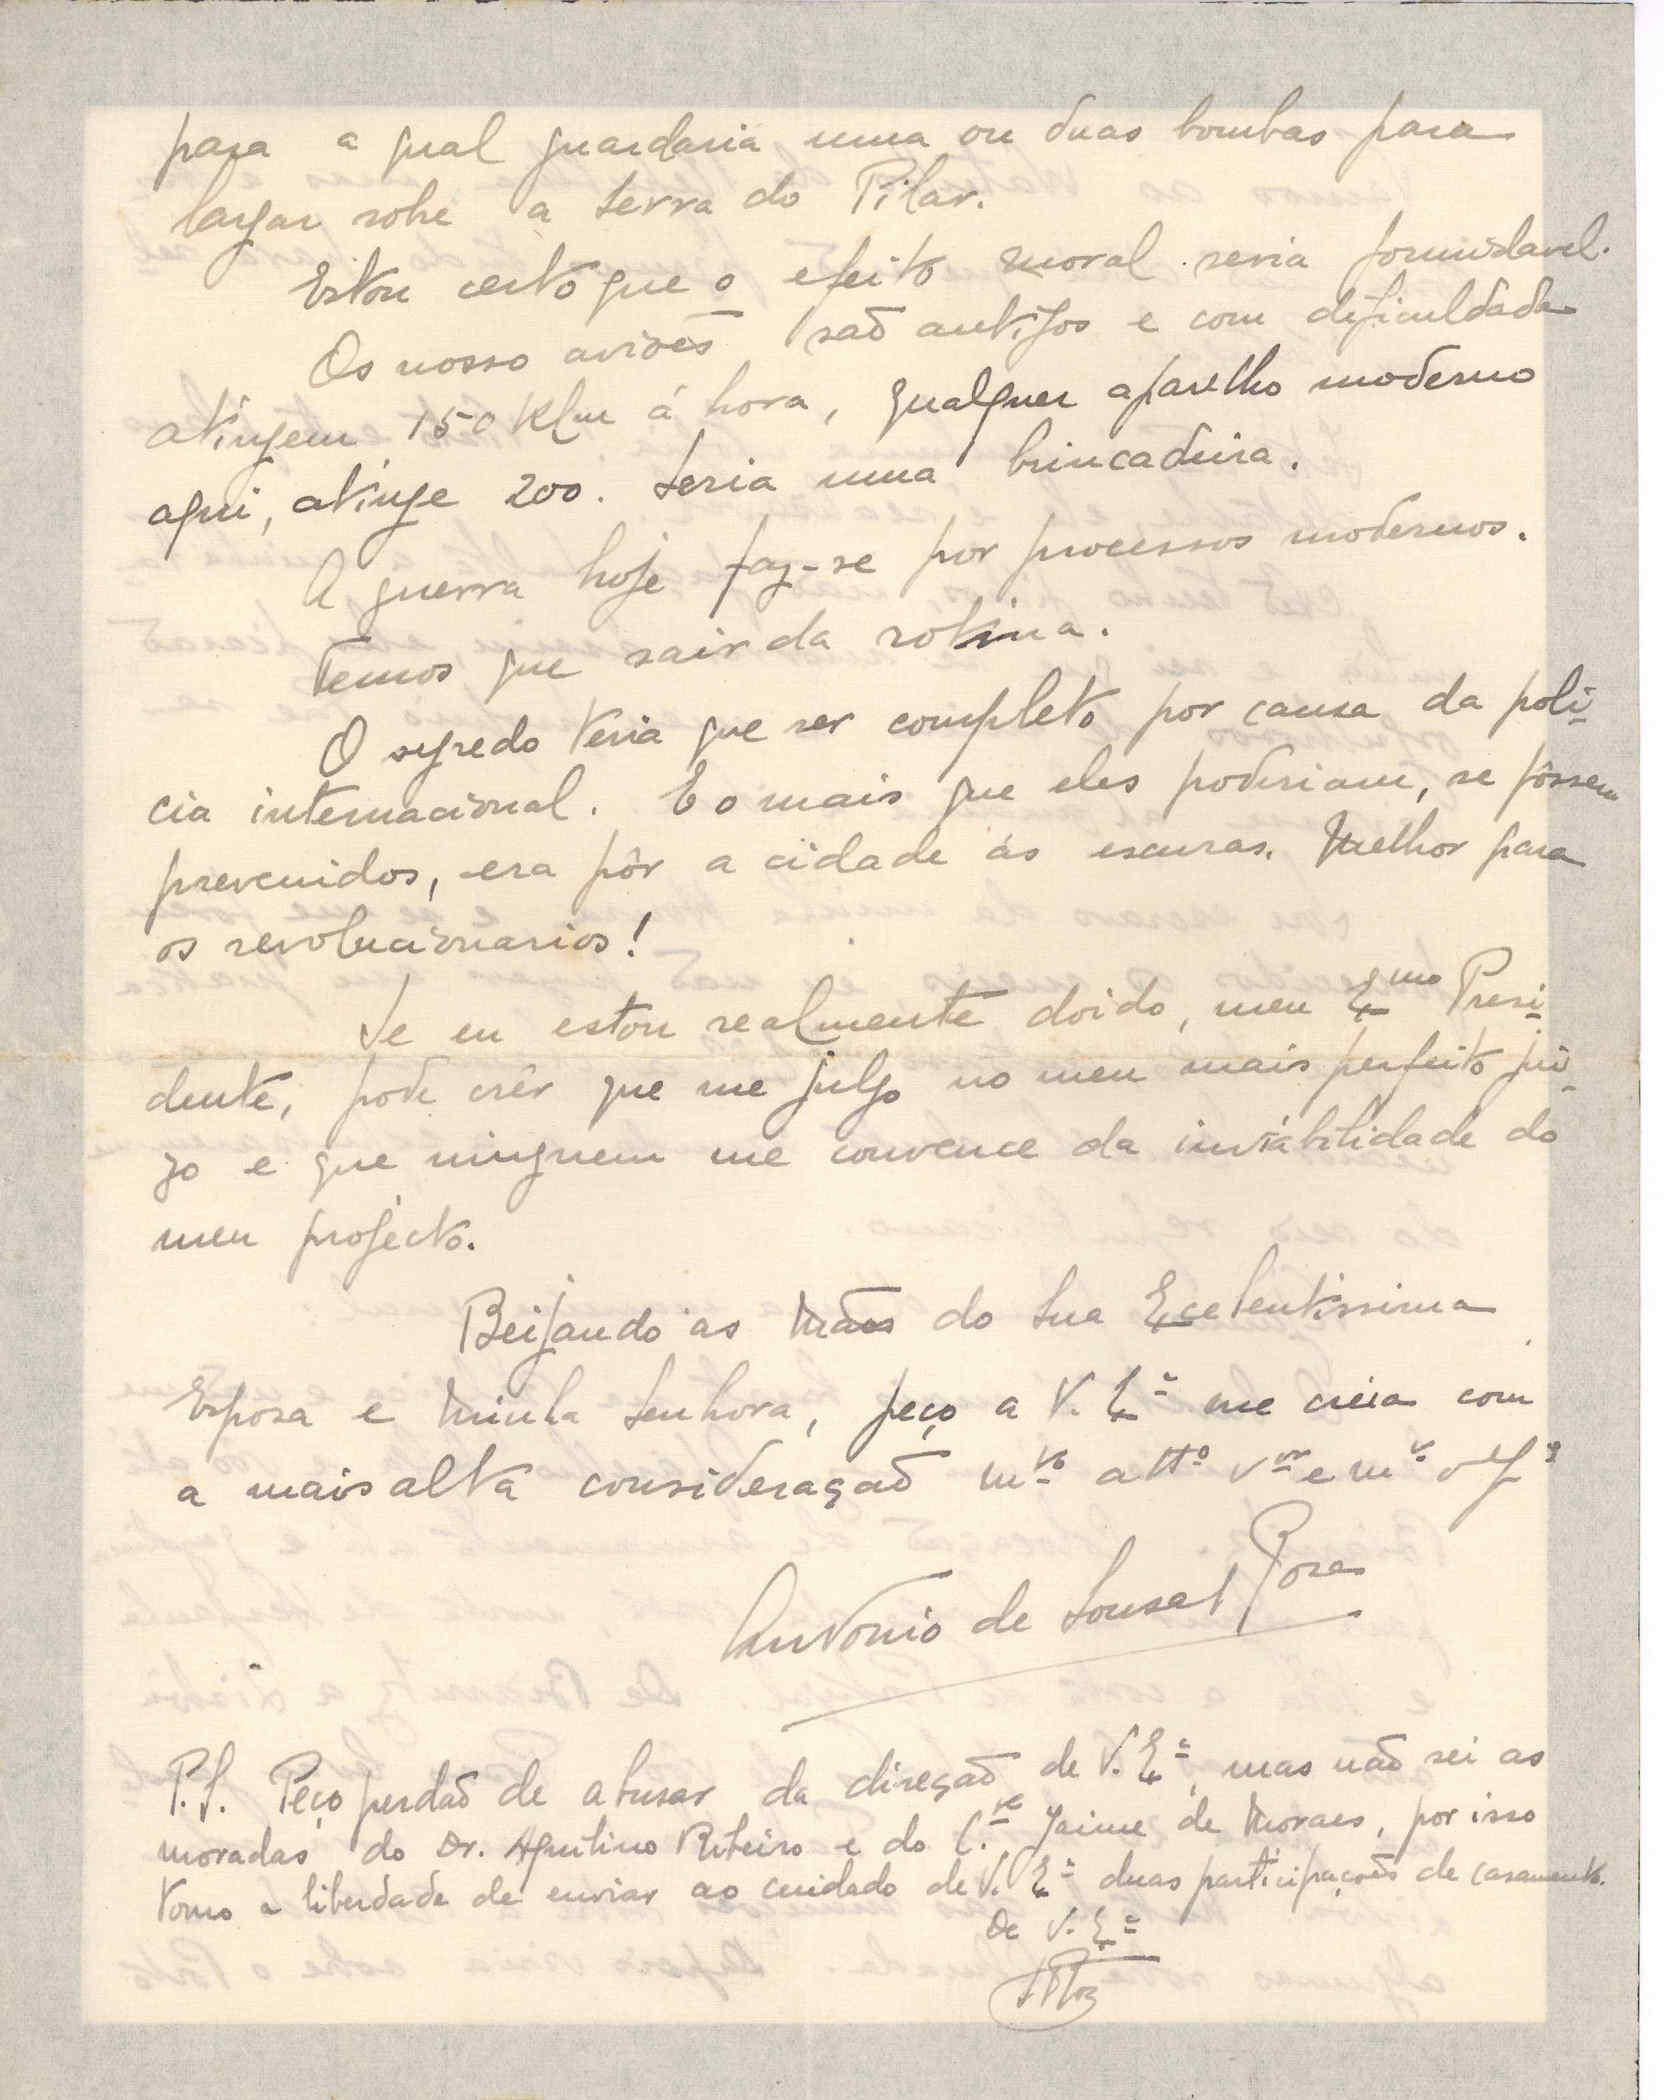 para a qual guardaria uma ou duas bombas para
largar sobre a Serra do Pilar.
Estou certo que o efeito moral seria formidavel.
Os nosso aviões são antigos e com dificuldade
atingem 150 Klm á hora, qualquer aparelho moderno
aqui, atinge 200. Seria uma brincadeira.
A guerra hoje faz-se por processos modernos.
Temos que sair da rotina.
O segredo teria que ser completo por causa da poli-
cia internacional. E o mais que eles poderiam, se fôssem
prevenidos, era pôr a cidade ás escuras. Melhor para
os revolucionarios!
Se eu estou realmente doido, meu Exmo Presi-
dente, pode crêr que me julgo no meu mais perfeito juí-
zo e que ninguem me convence da inviabilidade do
meu projecto.
Beijando as Mãos do Sua Excelentissima
Esposa e Minha Senhora, peço a V. Exª me creia com
a mais alta consideração mto atto vor e mto
Antonio de Sousa
P.S. Peço perdão de abusar da direção de V. Exª, mas não sei as
moradas do Dr. Agostinho Ribeiro e do C.te Jaime de Moraes, por isso
tomo a liberdade de enviar ao cuidado de V. Exª duas participações de casamento.
De V. Exª